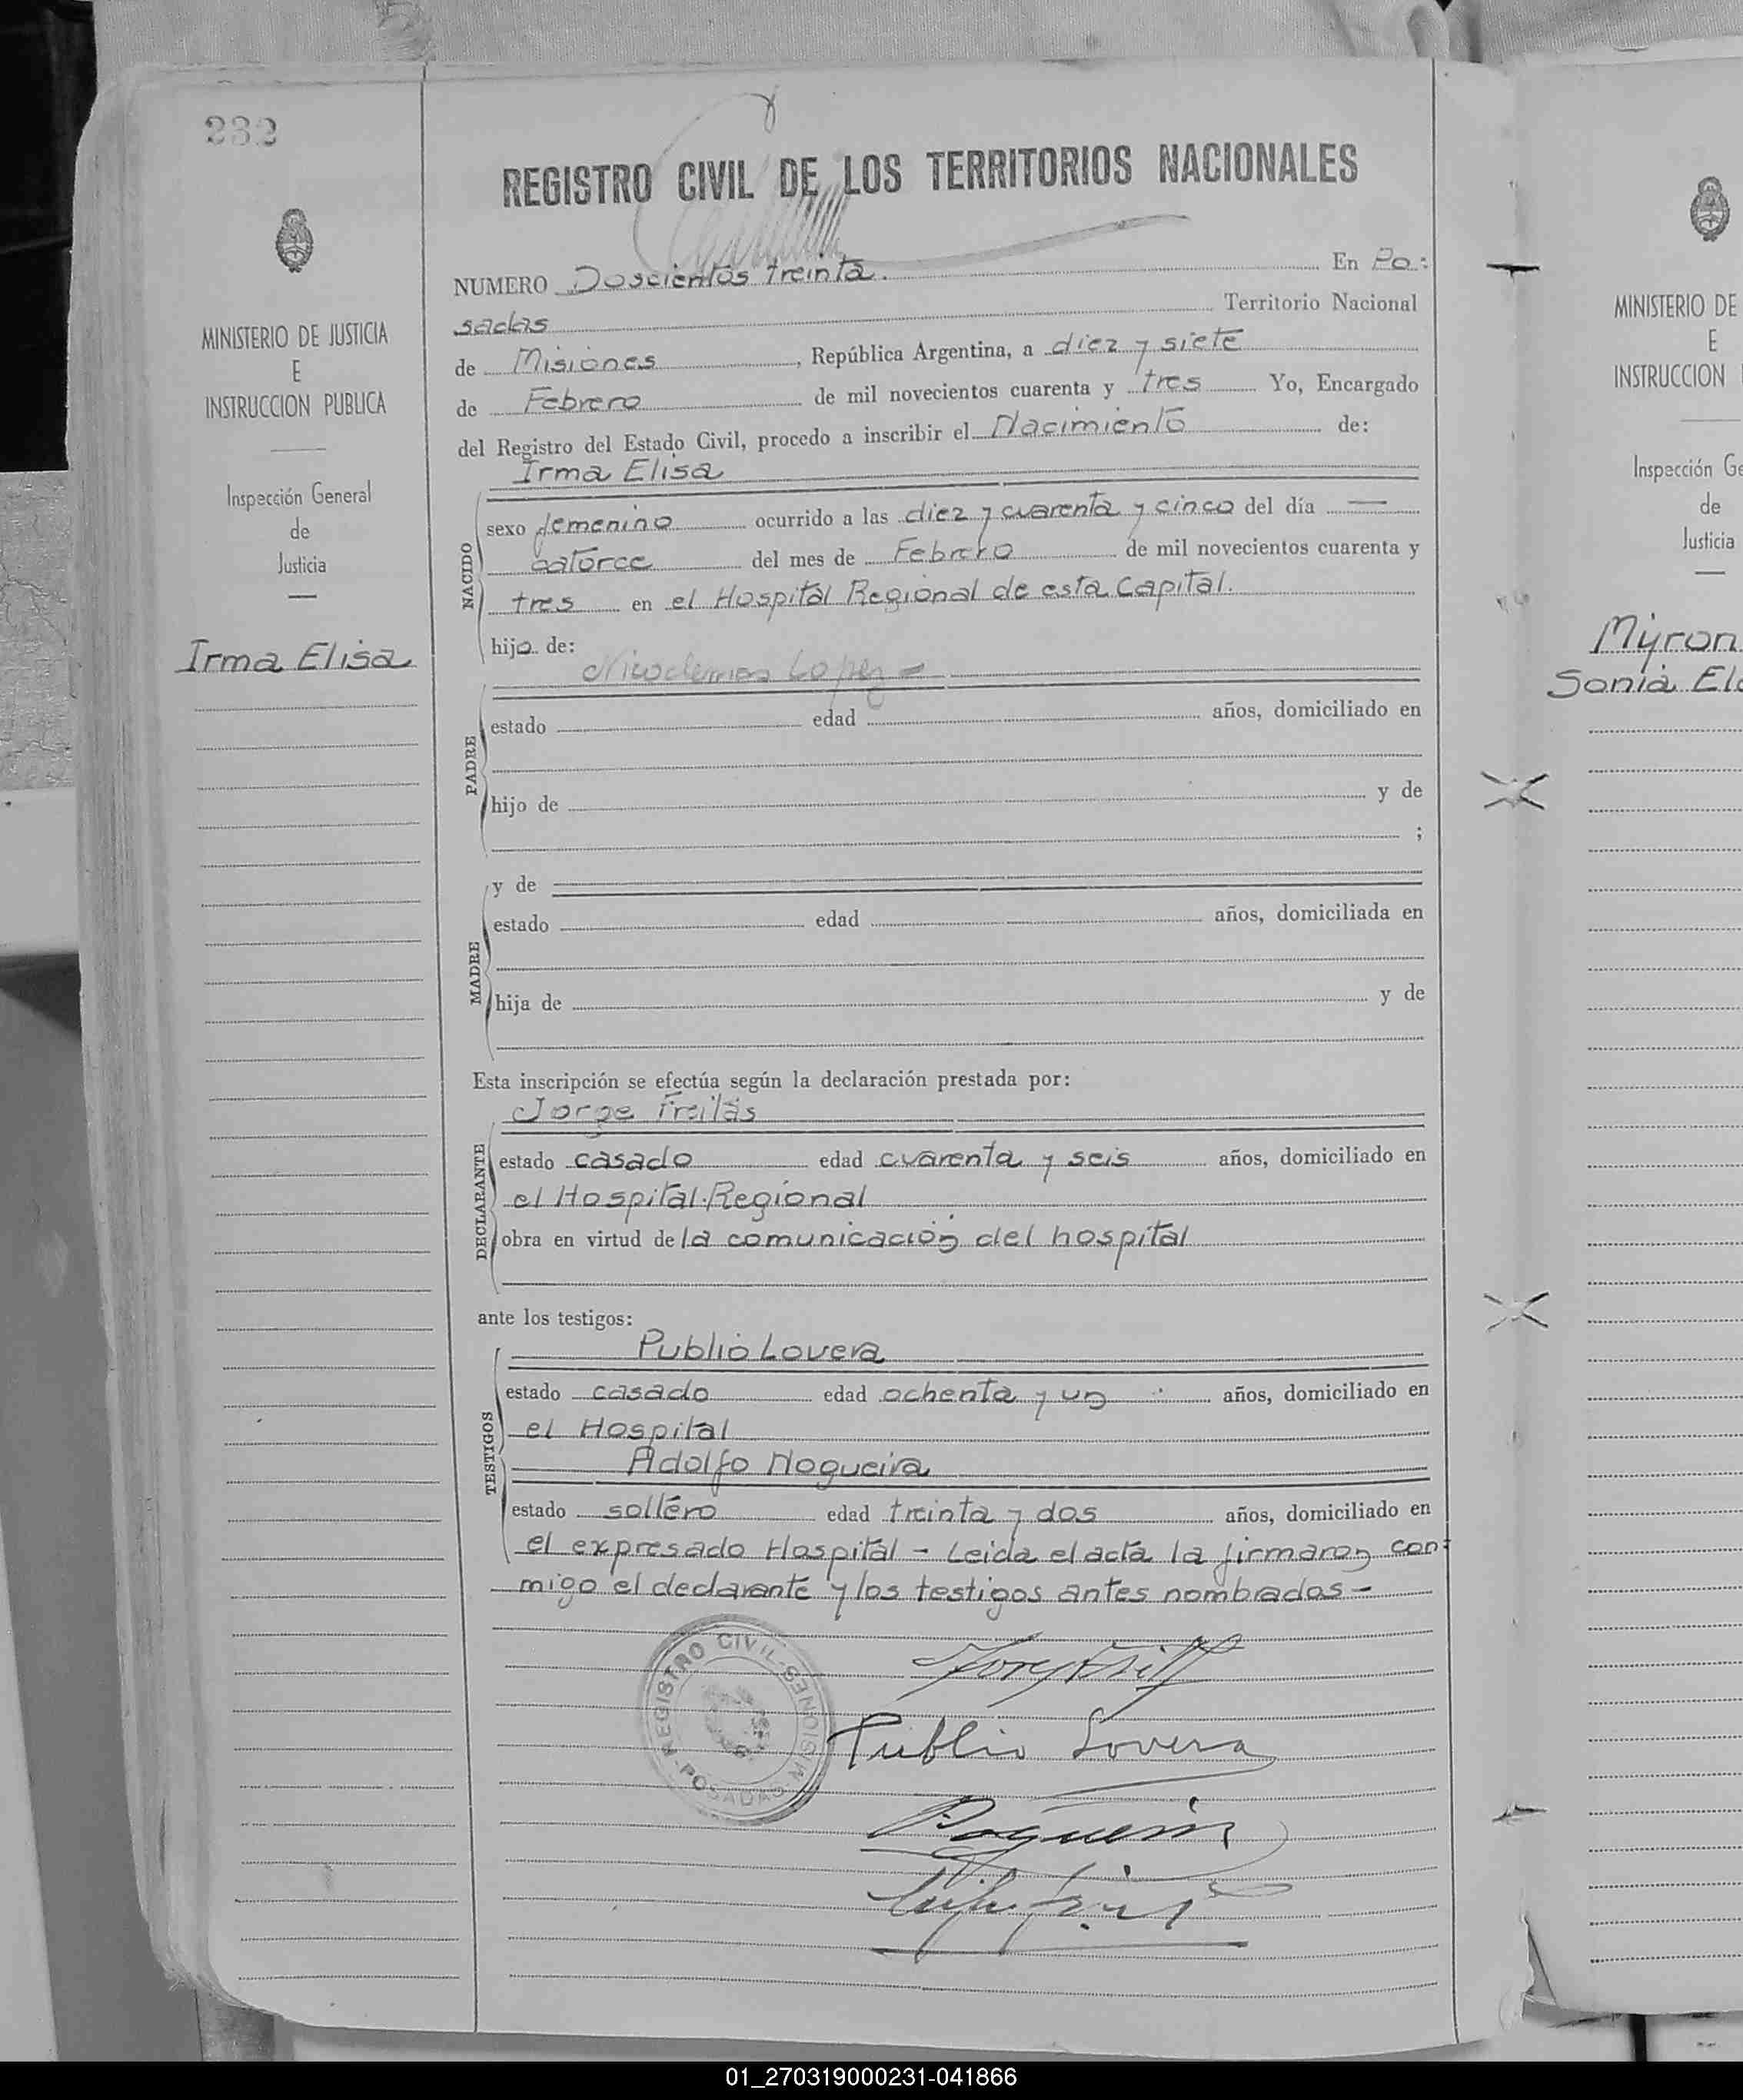 232
MINISTERIO DE JUSTICIA
E
INSTRUCCION PUBLICA
Inspección General
de
Justicia
Irma Elisa
REGISTRO CIVIL DE LOS TERRITORIOS NACIONALES
NUMERO Doscientos treinta. En Po:
sadas Territorio Nacional
de Misiones, República Argentina, a diez y siete
de Febrero de mil novecientos cuarenta y tres Yo, Encargado
del Registro del Estado Civil, procedo a inscribir el Nacimiento de:
Irma Elisa
NACIDO
sexo femenino ocurrido a las diez y cuarenta y cinco del día —
catorce del mes de Febrero de mil novecientos cuarenta y
tres en el Hospital Regional de esta Capital.
hijo de:
Nicodemos Lopez =
PADRE
estado edad años, domiciliado en
hijo de y de
;
y de
MADRE
estado edad años, domiciliada en
hija de y de
Esta inscripción se efectúa según la declaración prestada por:
Jorge Freitas
DECLARANTE
estado casado edad cuarenta y seis años, domiciliado en
el Hospital Regional
obra en virtud de la comunicación del hospital
ante los testigos:
Publio Lovera
TESTIGOS
estado casado edad ochenta y un años, domiciliado en
el Hospital
Adolfo Nogueira
estado soltero edad treinta y dos años, domiciliado en
el expresado Hospital - Leida el acta la firmaron con:
migo el declarante y los testigos antes nombrados -
REGISTRO CIVIL - MISIONES
POSADAS
Publio Lovera
Nogueira
MINISTERIO DE
E
INSTRUCCION
Inspección Ge
de
Justicia
Myron
Sonia El
01_270319000231-041866